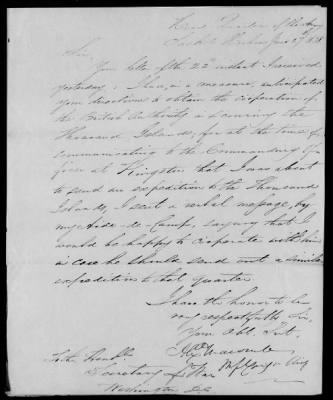 Head Quarters of the Army
Sackets Harbor June 27th 1838
Sir,
Your letter of the 22d instant I received
yesterday; I have, in a measure, anticipated
your directions to obtain the cooperation of
the British Authority in scouring the
Thousand Islands, for at the time of
communicating to the Commanding Of-
ficer at Kingston that I was about
to send an expedition to the Thousand
Islands, I sent a verbal message, by
my Aide-de-Camp, saying that I
would be happy to cooperate with him
in case he should send out a similar
expedition to that quarter.
I have the honor to be
very respectfully Sir,
Your Obt. Servt.
Alex Macomb
Maj. Gen.
To the Honble
Secretary of War
Washington D.C.